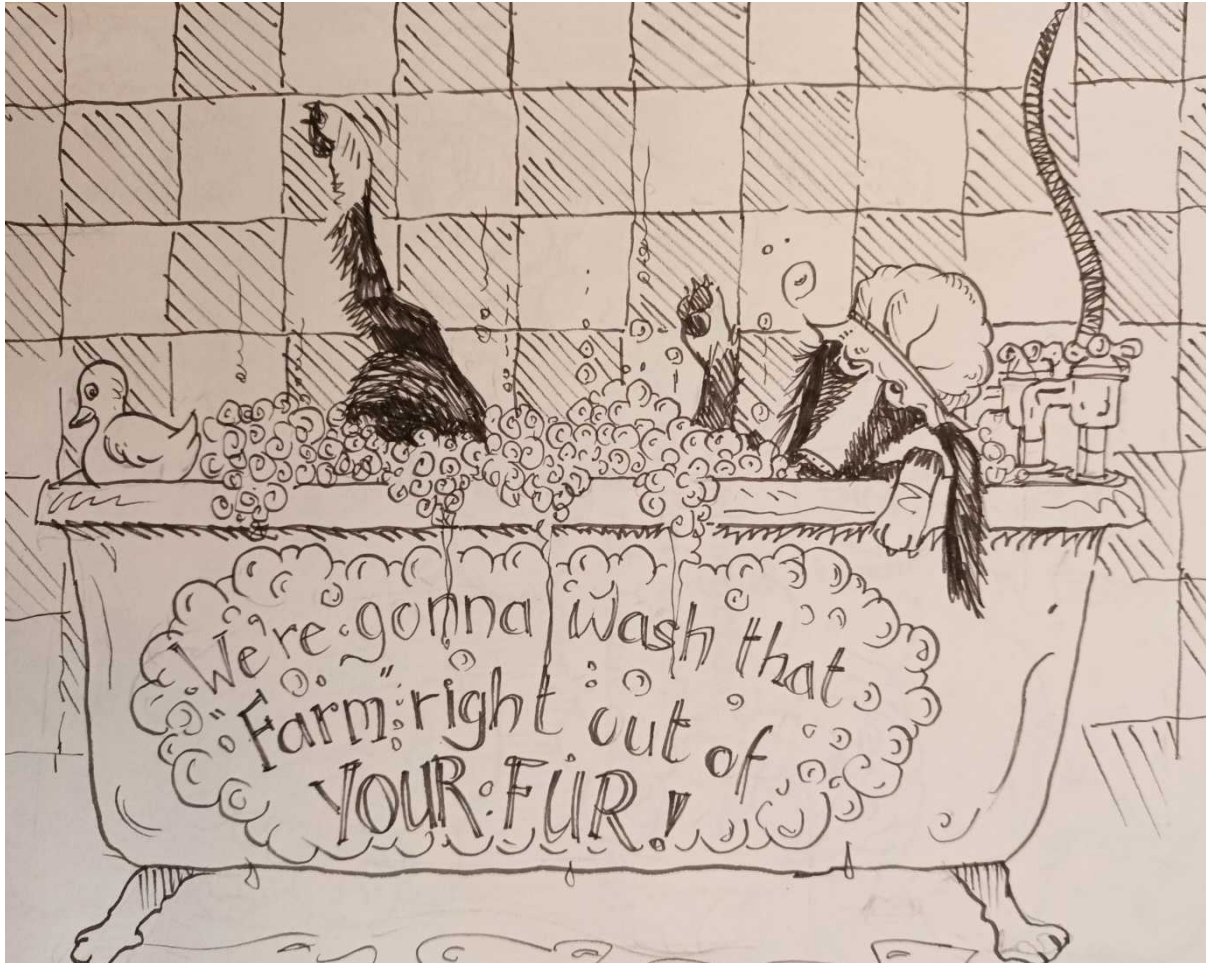 We're gonna wash that
"Farm" right out of
YOUR FUR!